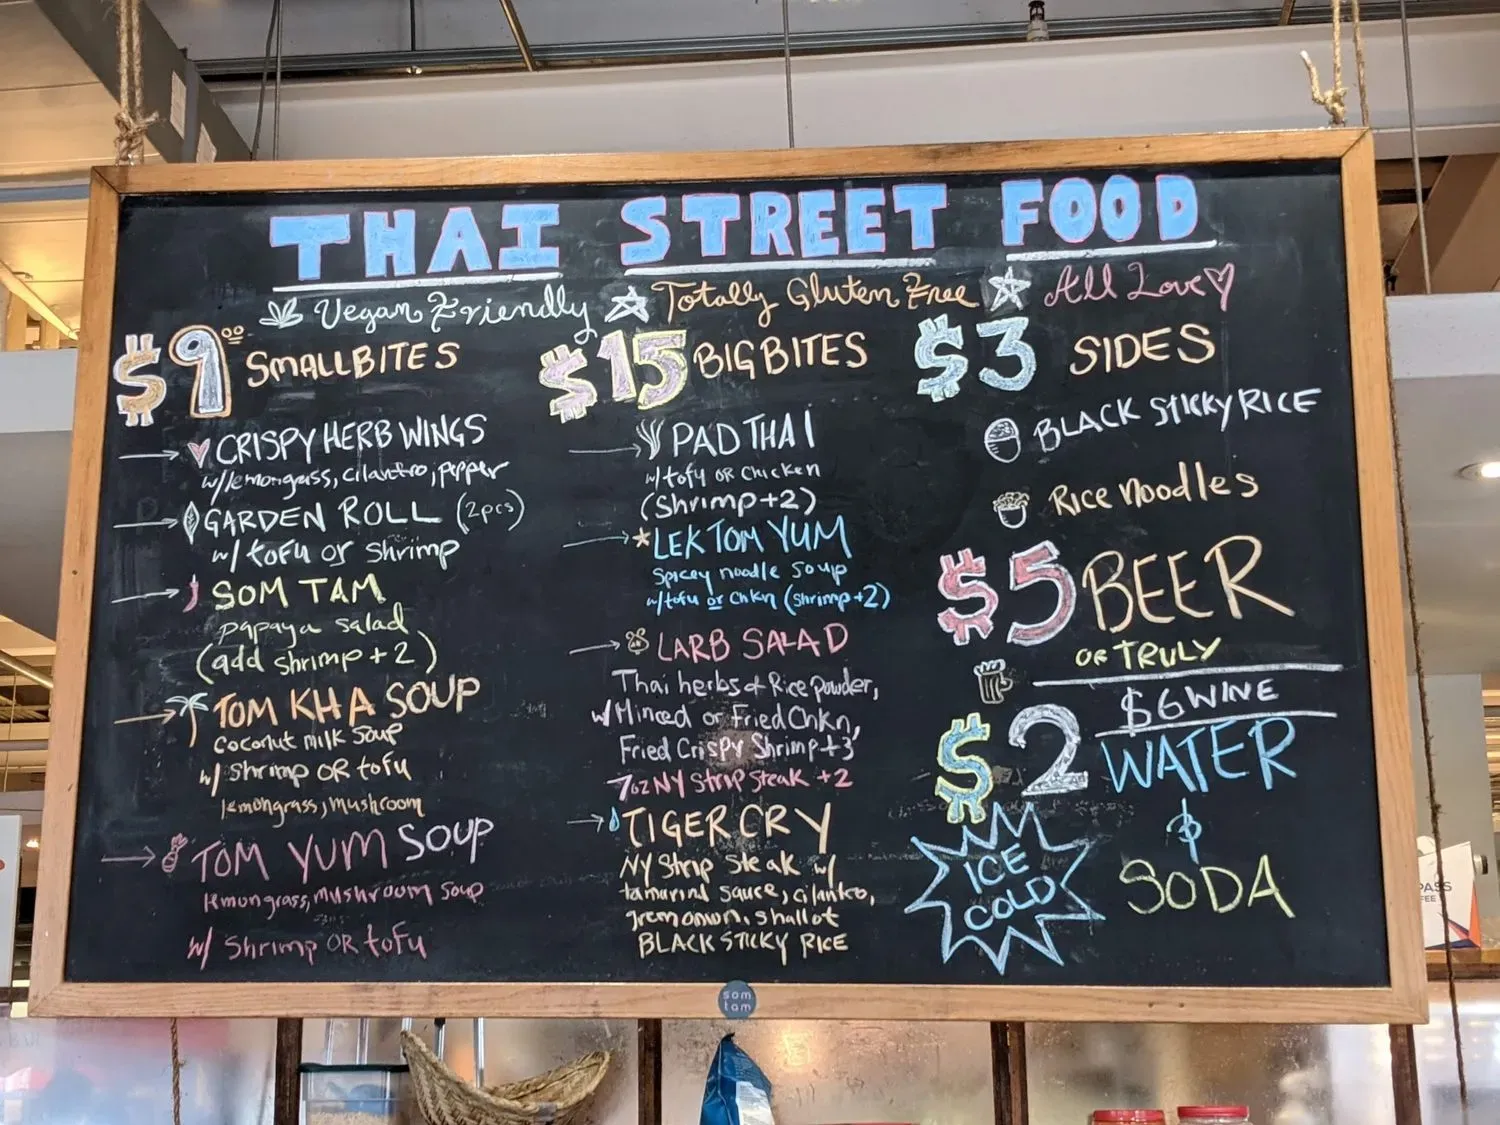 THAI STREET FOOD
Vegan Friendly Totally Gluten Free All Love
$9 SMALL BITES
CRISPY HERB WINGS
w/lemongrass, cilantro, pepper
GARDEN ROLL (2pcs)
w/ tofu or shrimp
SOM TAM
papaya salad
(add shrimp + 2)
TOM KHA SOUP
coconut milk soup
w/ shrimp OR tofu
lemongrass, mushroom
TOM YUM SOUP
lemongrass, mushroom soup
w/ shrimp OR tofu
$15 BIG BITES
PAD THAI
w/tofu OR chicken
(shrimp +2)
LEK TOM YUM
Spicey noodle soup
w/tofu or chkn (shrimp +2)
LARB SALAD
Thai herbs & Rice powder,
w/Minced or Fried Chkn,
Fried Crispy Shrimp +3
7oz NY strip steak +2
TIGER CRY
NY Strip steak w/
tamarind sauce, cilantro,
green onion, shallot
BLACK STICKY RICE
$3 SIDES
BLACK STICKY RICE
Rice noodles
$5 BEER
or TRULY
$6 WINE
$2 WATER
&
SODA
ICE
COLD
som
tam
PASS